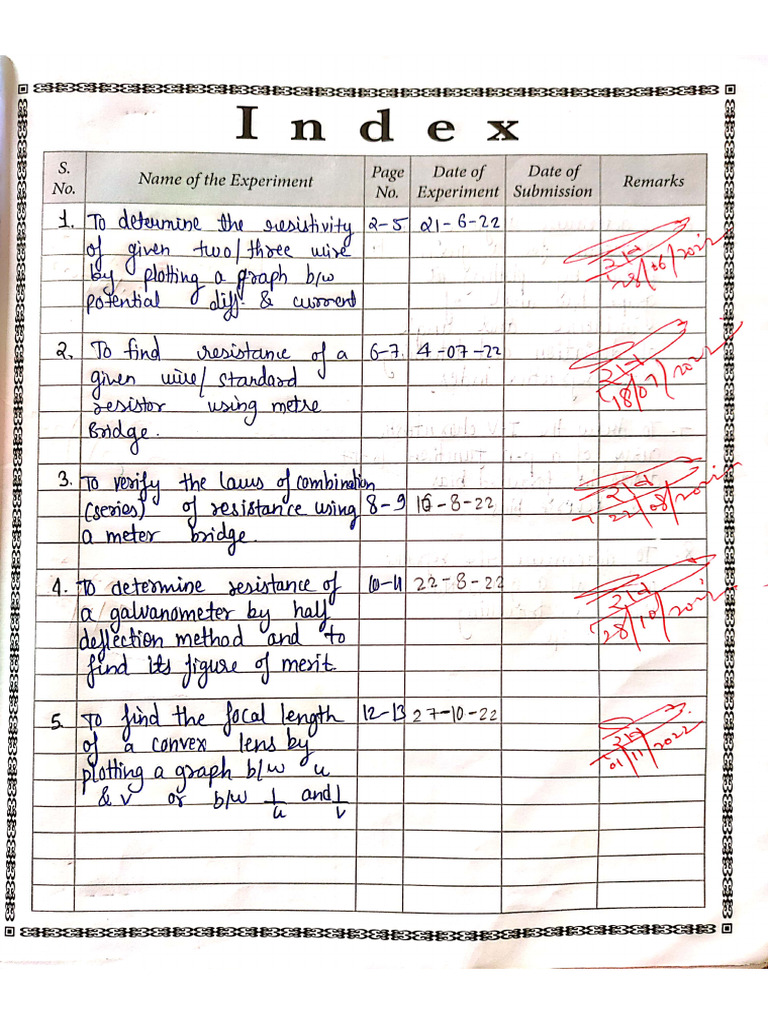 Index
S. No. Name of the Experiment Page No. Date of Experiment Date of Submission Remarks
1. To determine the resistivity 2-5 21-6-22
of given two/three wire
by plotting a graph b/w
potential diff. & current
28/06/2022
2. To find resistance of a 6-7. 4-07-22
given wire/standard
resistor using metre
Bridge.
18/07/2022
3. To verify the laws of combination
(series) of resistance using 8-9 16-8-22
a meter bridge.
22/08/2022
4. To determine resistance of 10-11 22-8-22
a galvanometer by half
deflection method and to
find its figure of merit.
28/10/2022
5. To find the focal length 12-13 27-10-22
of a convex lens by
plotting a graph b/w u
& v or b/w 1/u and 1/v
01/11/2022